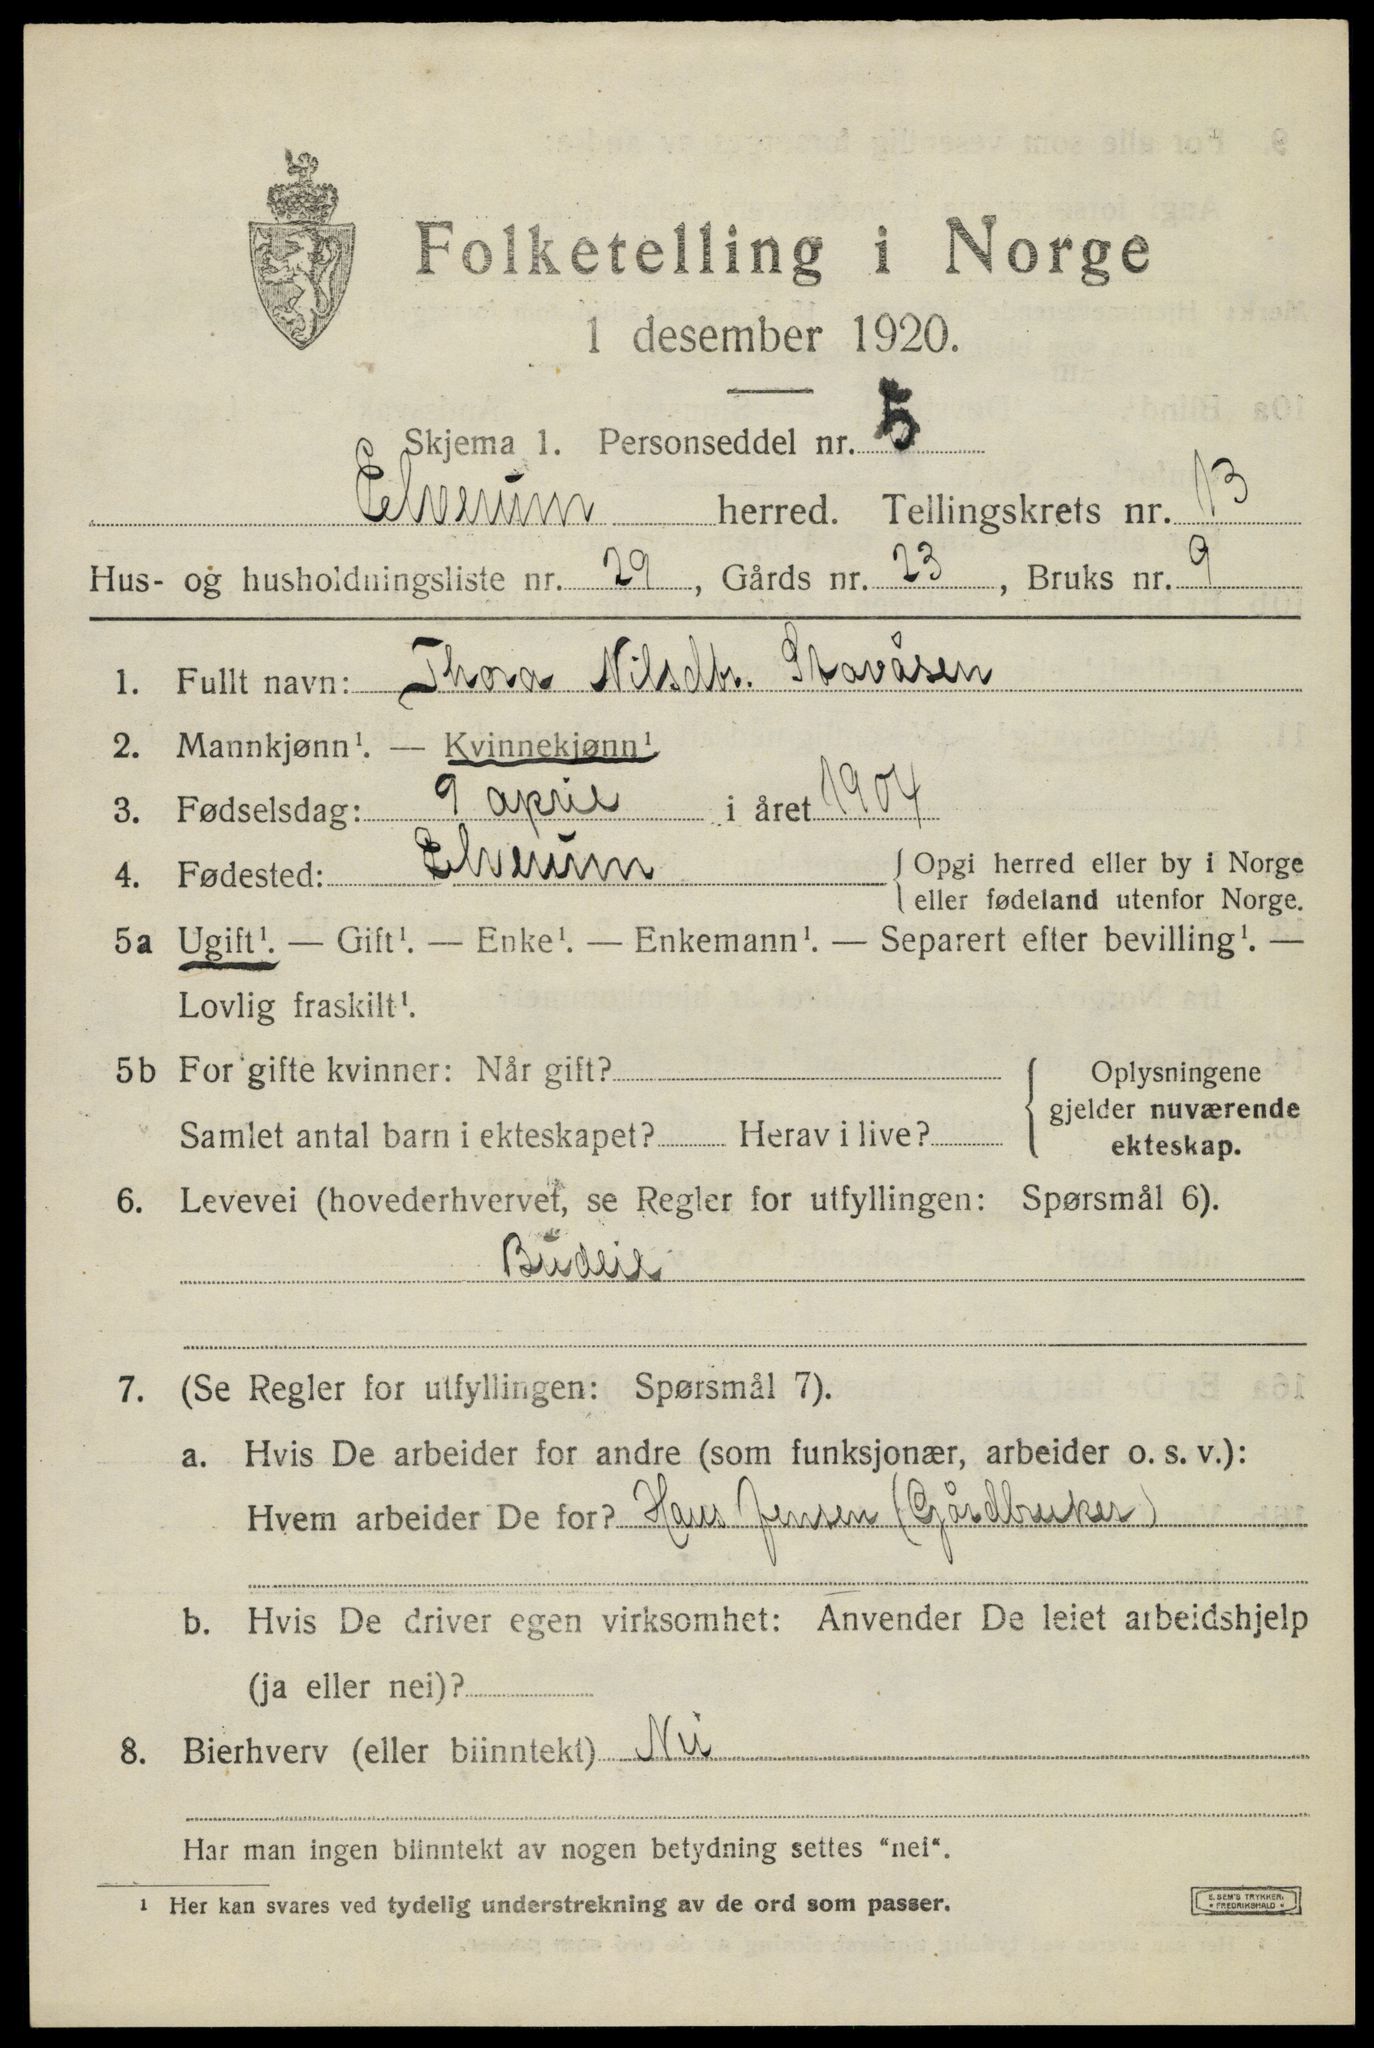 Folketelling i Norge
1 desember 1920.
Skjema 1. Personseddel nr. 5
Elverum herred. Tellingskrets nr. 13
Hus- og husholdningsliste nr. 29, Gårds nr. 23, Bruks nr. 9
1. Fullt navn: Thora Nilsdtr. Stavåsen
2. Mannkjønn¹. — Kvinnekjønn¹
3. Fødselsdag: 9 april i året 1904
4. Fødested: Elverum { Opgi herred eller by i Norge
eller fødeland utenfor Norge.
5a Ugift¹. — Gift¹. — Enke¹. — Enkemann¹. — Separert efter bevilling¹. —
Lovlig fraskilt¹.
5b For gifte kvinner: Når gift?
Samlet antal barn i ekteskapet? Herav i live?
{ Oplysningene
gjelder nuværende
ekteskap.
6. Levevei (hovederhvervet, se Regler for utfyllingen: Spørsmål 6).
Budeie
7. (Se Regler for utfyllingen: Spørsmål 7).
a. Hvis De arbeider for andre (som funksjonær, arbeider o. s. v.):
Hvem arbeider De for? Hans Jensen (Gårdbruker)
b. Hvis De driver egen virksomhet: Anvender De leiet arbeidshjelp
(ja eller nei)?
8. Bierhverv (eller biinntekt) Nei
Har man ingen biinntekt av nogen betydning settes "nei".
¹ Her kan svares ved tydelig understrekning av de ord som passer.
E. SEM'S TRYKKERI.
* FREDRIKSHALD *